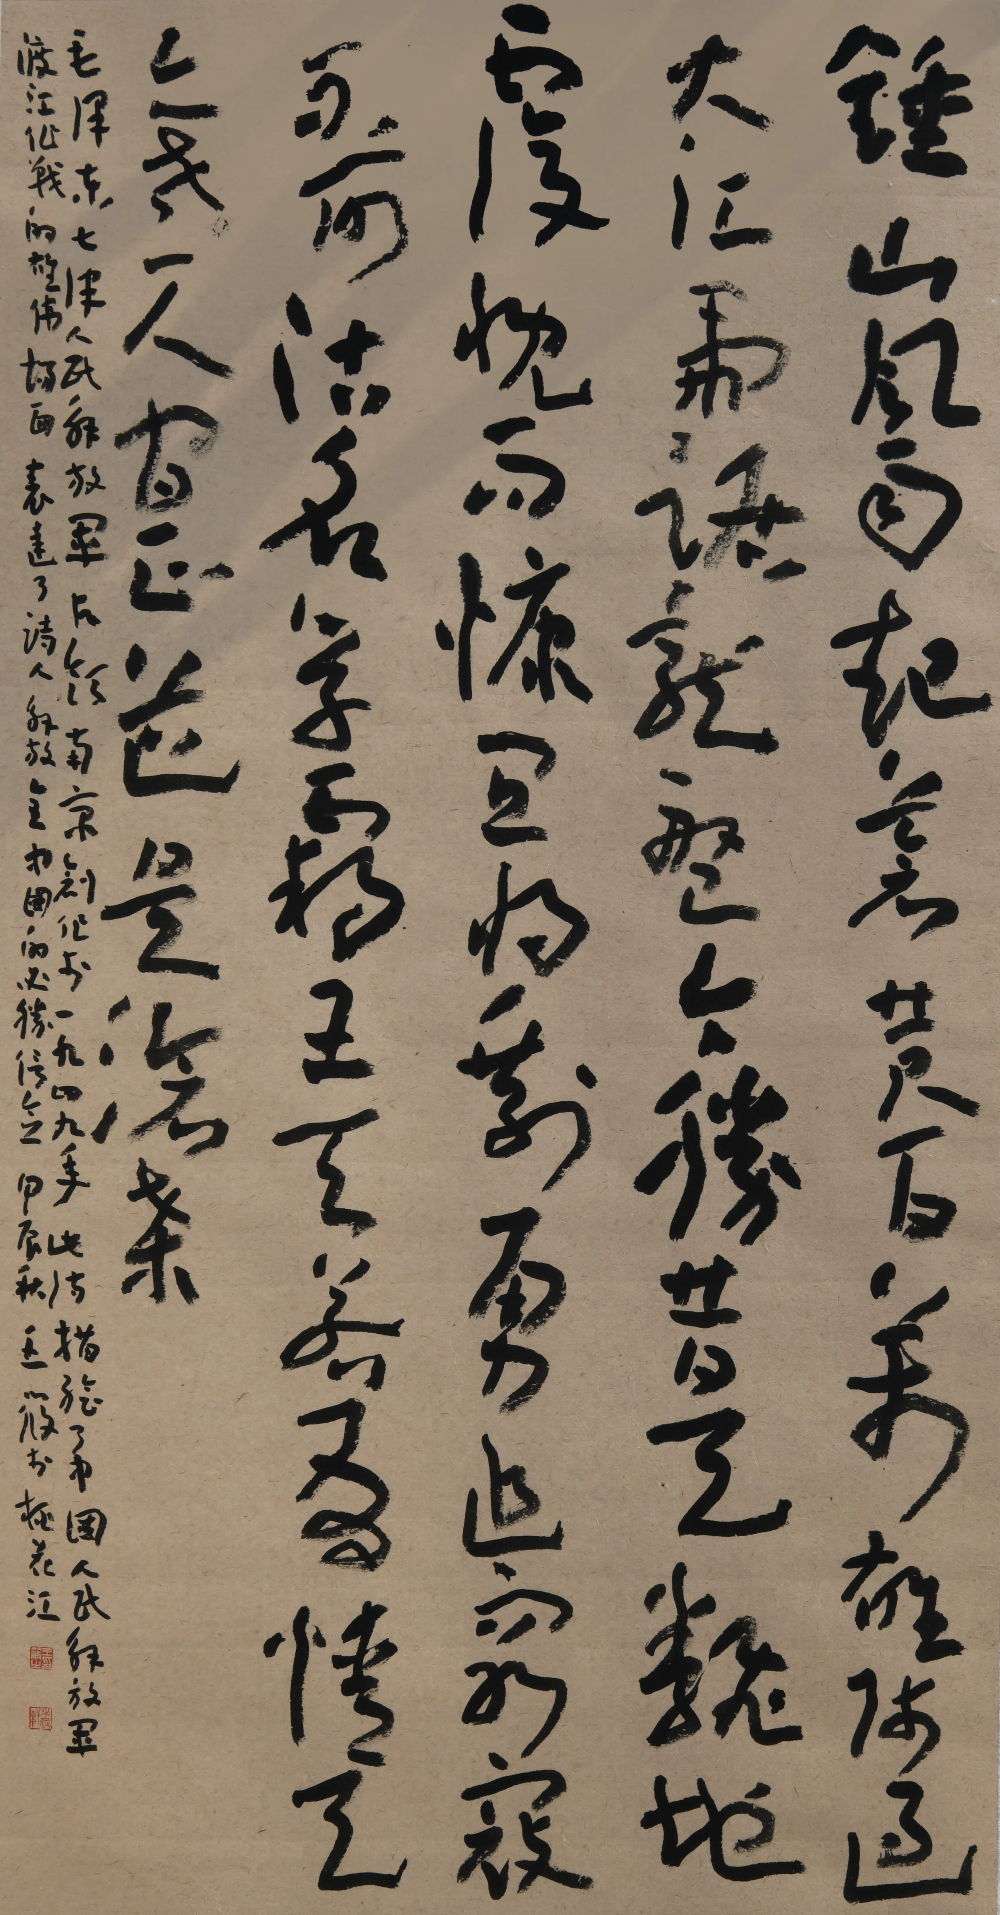 鍾山風雨起蒼黃百萬雄師過
大江虎踞龍盤今勝昔天翻地
覆慨而慷宜將剩勇追窮寇
不可沽名學霸王天若有情天
亦老人間正道是滄桑
毛澤東七律人民解放軍占領南京創作於一九四九年此诗描繪了中國人民解放軍
渡江作戰的雄偉場面表達了詩人解放全中國的必勝信念甲辰秋王於花江